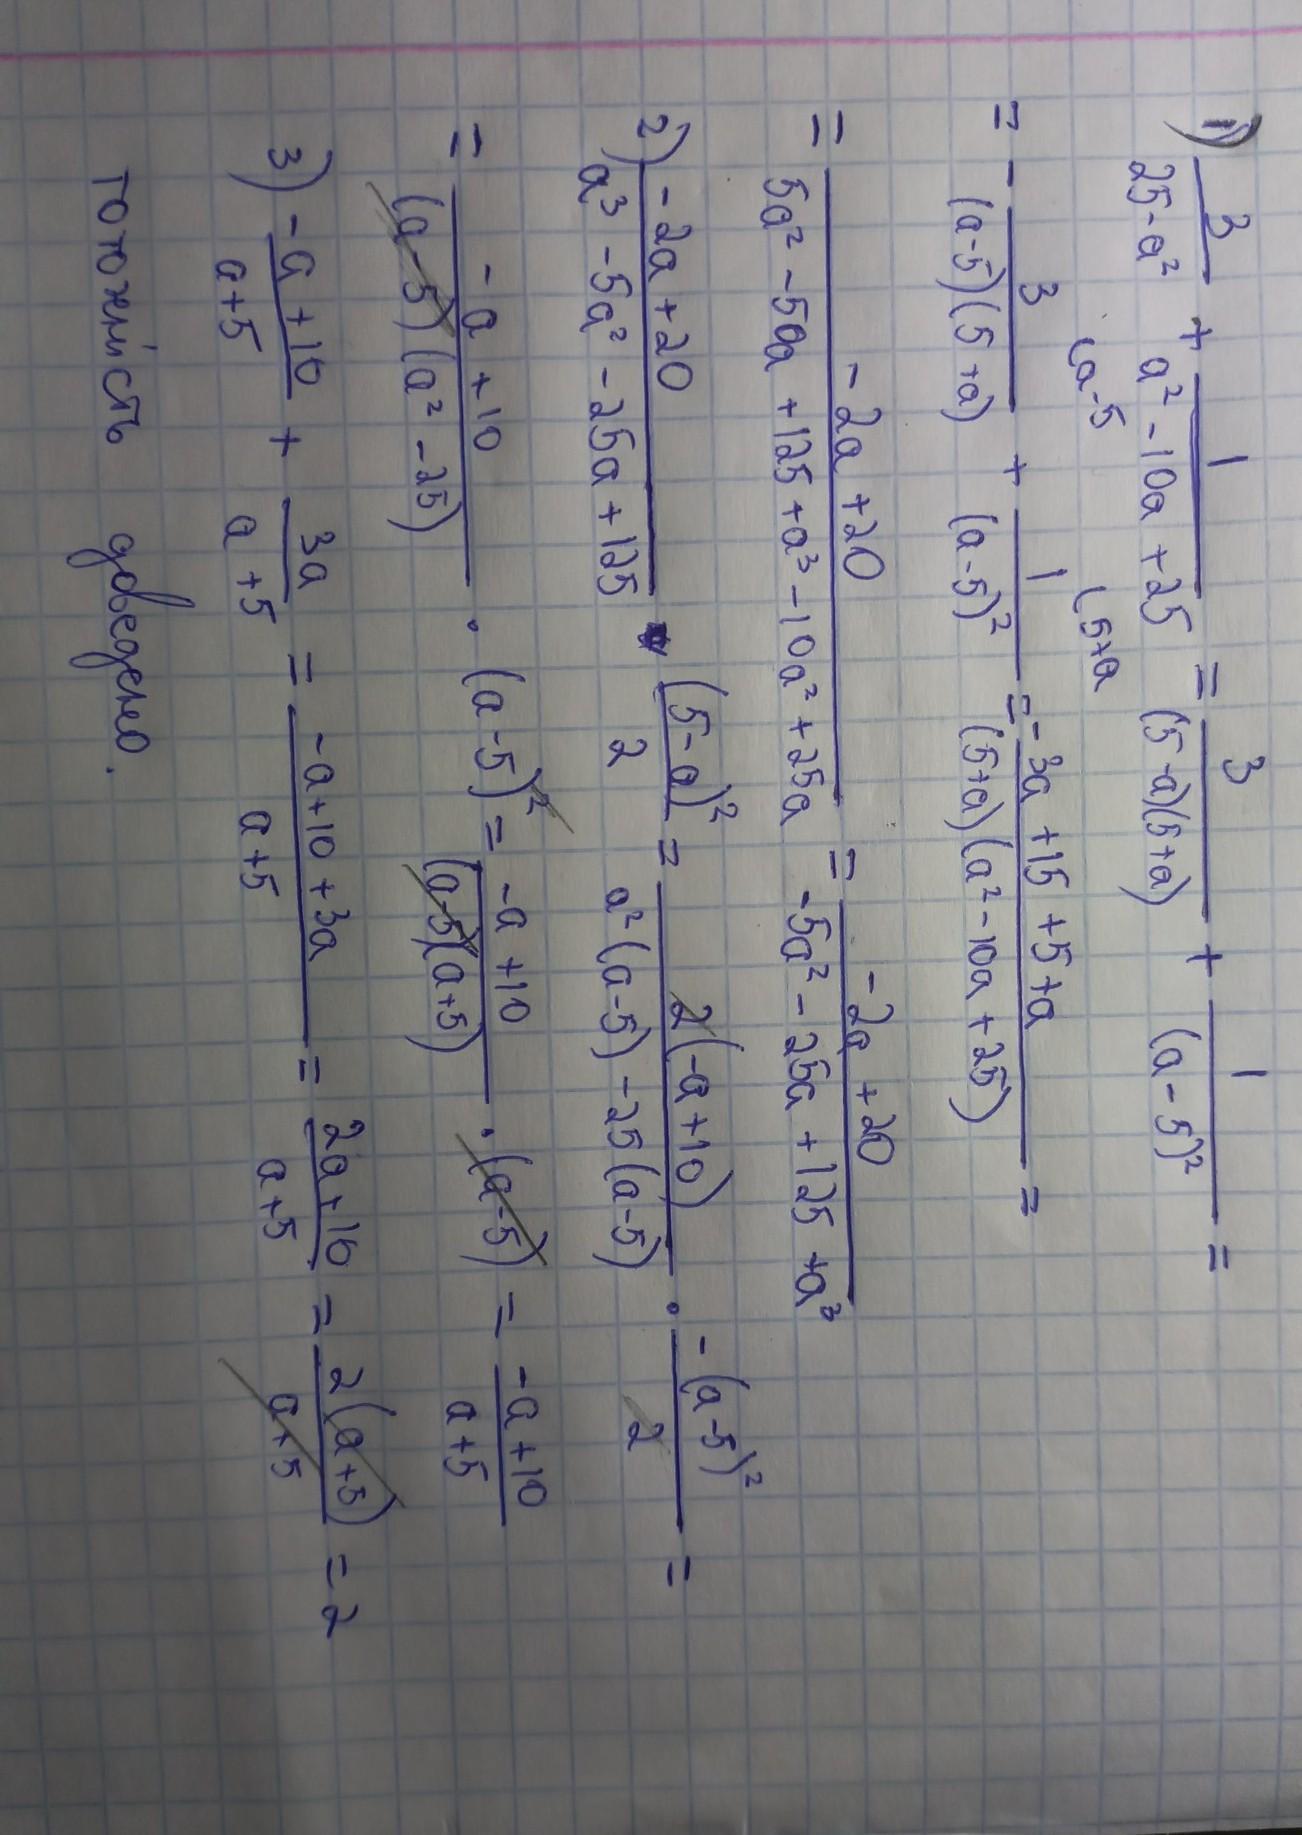 1) 3/(25-a²) + 1/(a²-10a+25) = 3/((5-a)(5+a)) + 1/(a-5)² =
(a-5 (5+a
= - 3/((a-5)(5+a)) + 1/(a-5)² = (-3a+15+5+a)/((5+a)(a²-10a+25)) =
= (-2a+20)/(5a²-50a+125+a³-10a²+25a) = (-2a+20)/(-5a²-25a+125+a³)
2) (-2a+20)/(a³-5a²-25a+125) · (5-a)²/2 = 2(-a+10)/(a²(a-5)-25(a-5)) · -(a-5)²/2 =
= (-a+10)/((a-5)(a²-25)) · (a-5)² = (-a+10)/((a-5)(a+5)) · (a-5) = (-a+10)/(a+5)
3) (-a+10)/(a+5) + 3a/(a+5) = (-a+10+3a)/(a+5) = (2a+10)/(a+5) = 2(a+5)/(a+5) = 2
тотожність доведено.